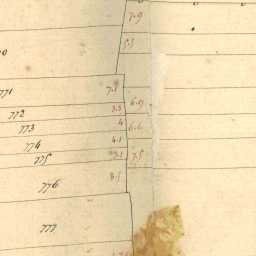 7.9
5.5
771
7.5
772
3.3
6.9
773
4
6.6
774
4.1
775
3.1
7.5
776
8.5
777